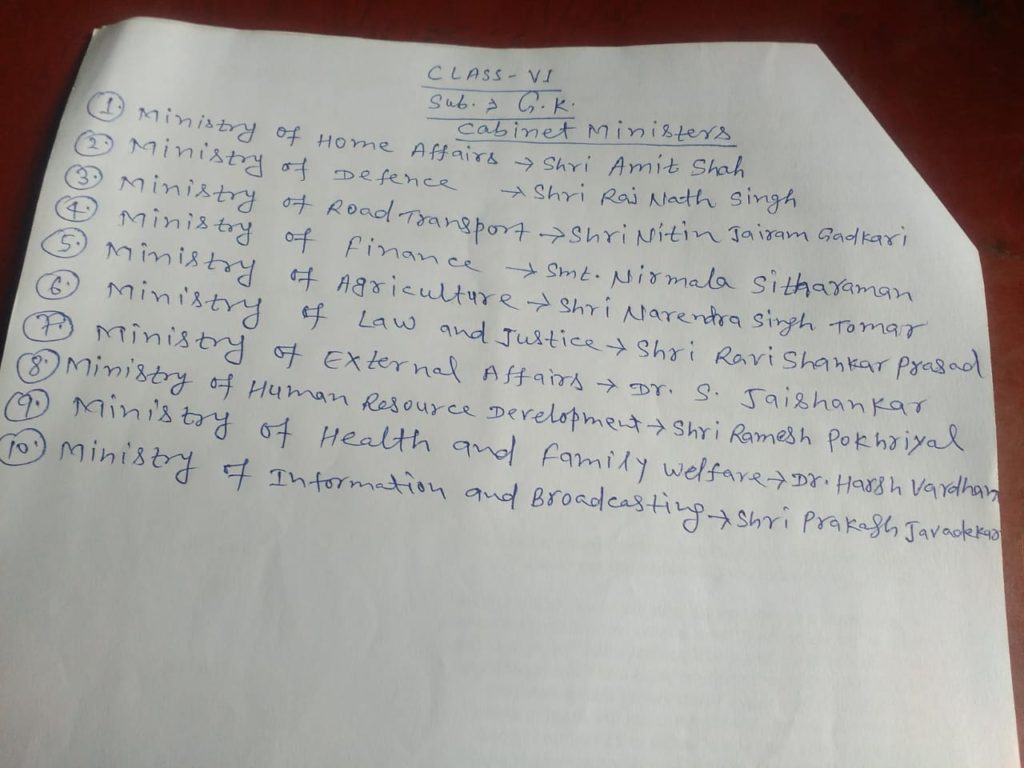 CLASS - VI
Sub. → G.K.
Cabinet Ministers
1. Ministry of Home Affairs → Shri Amit Shah
2. Ministry of Defence → Shri Raj Nath Singh
3. Ministry of Road Transport → Shri Nitin Jairam Gadkari
4. Ministry of Finance → Smt. Nirmala Sitharaman
5. Ministry of Agriculture → Shri Narendra Singh Tomar
6. Ministry of Law and Justice → Shri Ravi Shankar Prasad
7. Ministry of External Affairs → Dr. S. Jaishankar
8. Ministry of Human Resource Development → Shri Ramesh Pokhriyal
9. Ministry of Health and Family Welfare → Dr. Harsh Vardhan
10. Ministry of Information and Broadcasting → Shri Prakash Javadekar